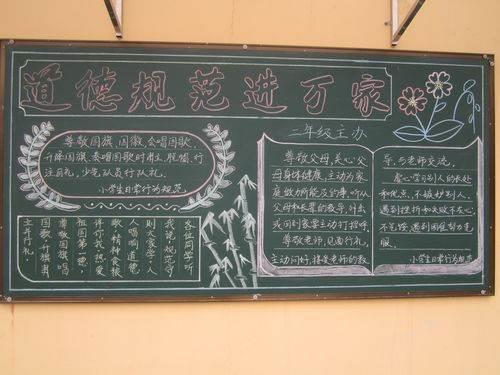 道德规范进万家
二年级主办
尊敬国旗、国徽,会唱国歌,
升降国旗、奏唱国歌时肃立、脱帽、行
注目礼,少先队员行队礼。
小学生日常行为规范
各位同学听
我说,规范守
则大家学。人
人唱响道德
歌,精神食粮
伴你我。热爱
祖国第一德,
尊敬国旗唱
国歌。升旗肃
立并行礼
尊敬父母,关心父
母身体健康,主动为家
庭做力所能及的事,听从
父母和长辈的教导,外出
或回到家要主动打招呼。
尊敬老师,见面行礼,
主动问好,接受老师的教
导,与老师交流。
虚心学习别人的长处
和优点,不嫉妒别人。
遇到挫折和失败不灰心,
不气馁,遇到困难努力克
服。
小学生日常行为规范